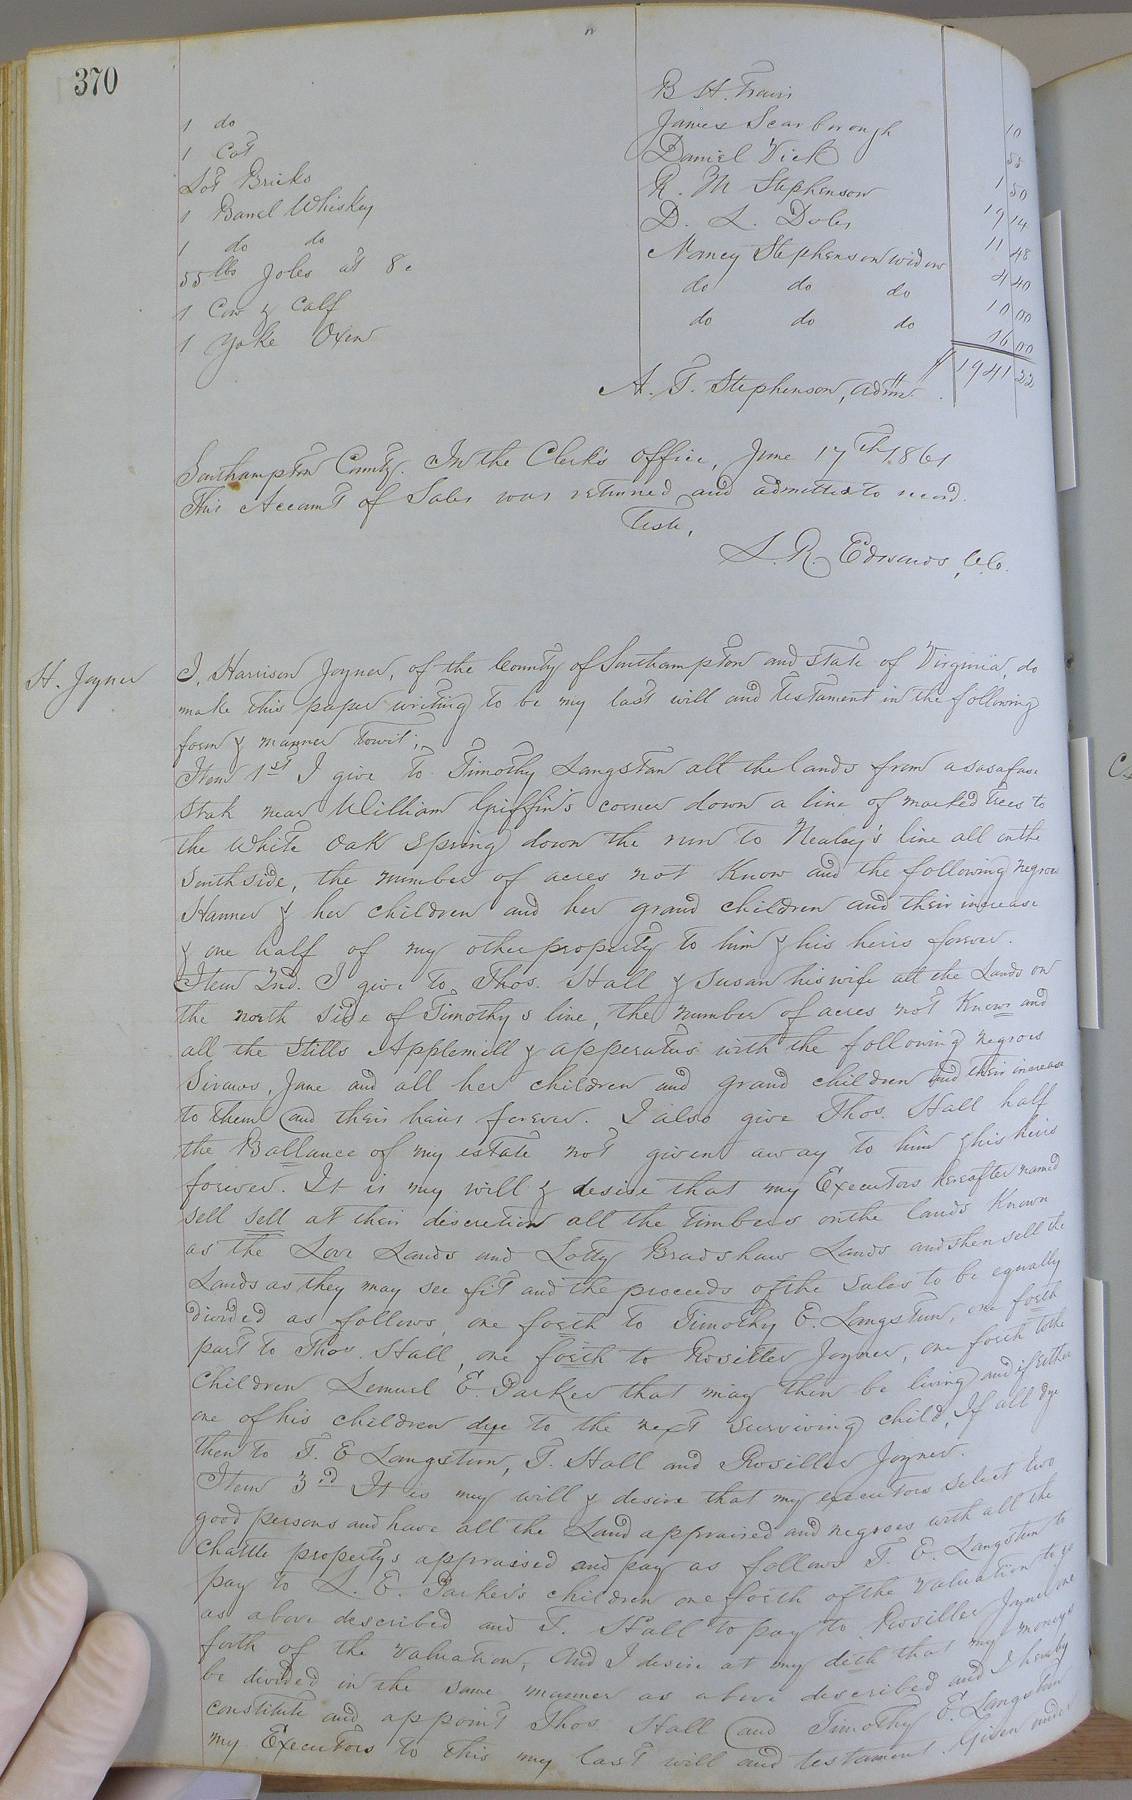 370
1 do B. H. Travis
1 Cot James Scarborough 10
Lot Bricks Daniel Vick 55
1 Barrel Whiskey R. M Stephenson 1 50
1 do do D. L. Doles 19 14
55 lbs Joles at 8c Nancy Stephenson widow 11 48
1 Cow & Calf do do do 4 40
1 Yoke Oxen do do do 10 00
16 00
$1941 22
A. T. Stephenson, admr.
Southampton County. In the Clerk's office, June 17th 1861
This Account of Sales was returned and admitted to record.
Teste,
L. R. Edwards, C.C.
H. Joyner
I, Harrison Joyner, of the County of Southampton and state of Virginia, do
make this paper writing to be my last will and testament in the following
form & manner towit;
Item 1st I give to Timothy Langston all the lands from a sasafrass
Stak near William Griffin's corner down a line of marked trees to
the White Oak Spring down the run to Nealey's line all on the
South side, the number of acres not Know and the following negroes
Hanner & her children and her grand children and their increase
& one half of my other property to him & his heirs forever.
Item 2nd. I give to Thos. Hall & Susan his wife all the Lands on
the north side of Timothy's line, the number of acres not Know and
all the Stills Applemill & apperatus with the following negroes
Jane and all her children and grand children and their increase
to them and their heirs forever. I also give Thos. Hall half
the Ballance of my estate not given away to him & his heirs
forever. It is my will & desire that my Executors hereafter named
sell sell at their discretion all the timbers on the lands Known
as the Love Lands and Lotty Bradshaw Lands and then sell the
Lands as they may see fit and the proceeds of the sales to be equally
divided as follows, one forth to Timothy E. Langstun, one forth
part to Thos. Hall, one forth to Rosiller Joyner, one forth to the
Children Lemuel E. Parker that may then be living and if either
one of his children dye to the next surviving child, If all dye
then to T. E Langstun, T. Hall and Rosiller Joyner.
Item 3rd It is my will & desire that my executors select two
good persons and have all the Land appraised and negroes with all the
Chattle propertys appraised and pay as follows T. E. Langstun to
pay to L. E. Parker's children one forth of the valuation to go
as above described and T. Hall to pay to Rosiller Joyner one
forth of the valuation, And I desire at my deth that my moneys
be divided in the same manner as above described and I hereby
constitute and appoint Thos Hall and Timothy E. Langstun
my Executors to this my last will and testament. Given under